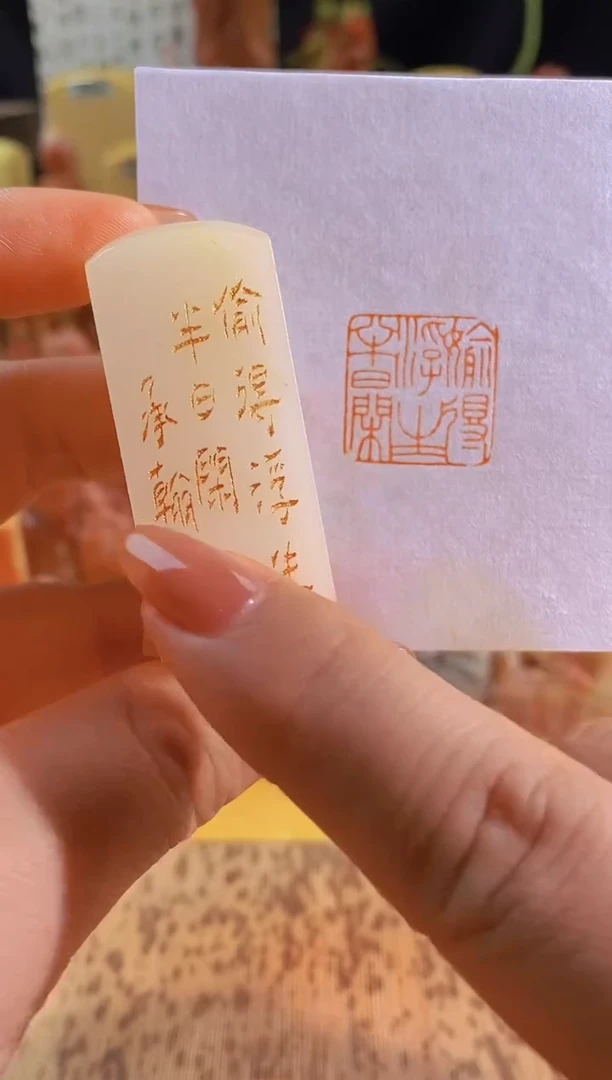 偷得浮生
半日閑
承翰
媮得
浮生
半日閑